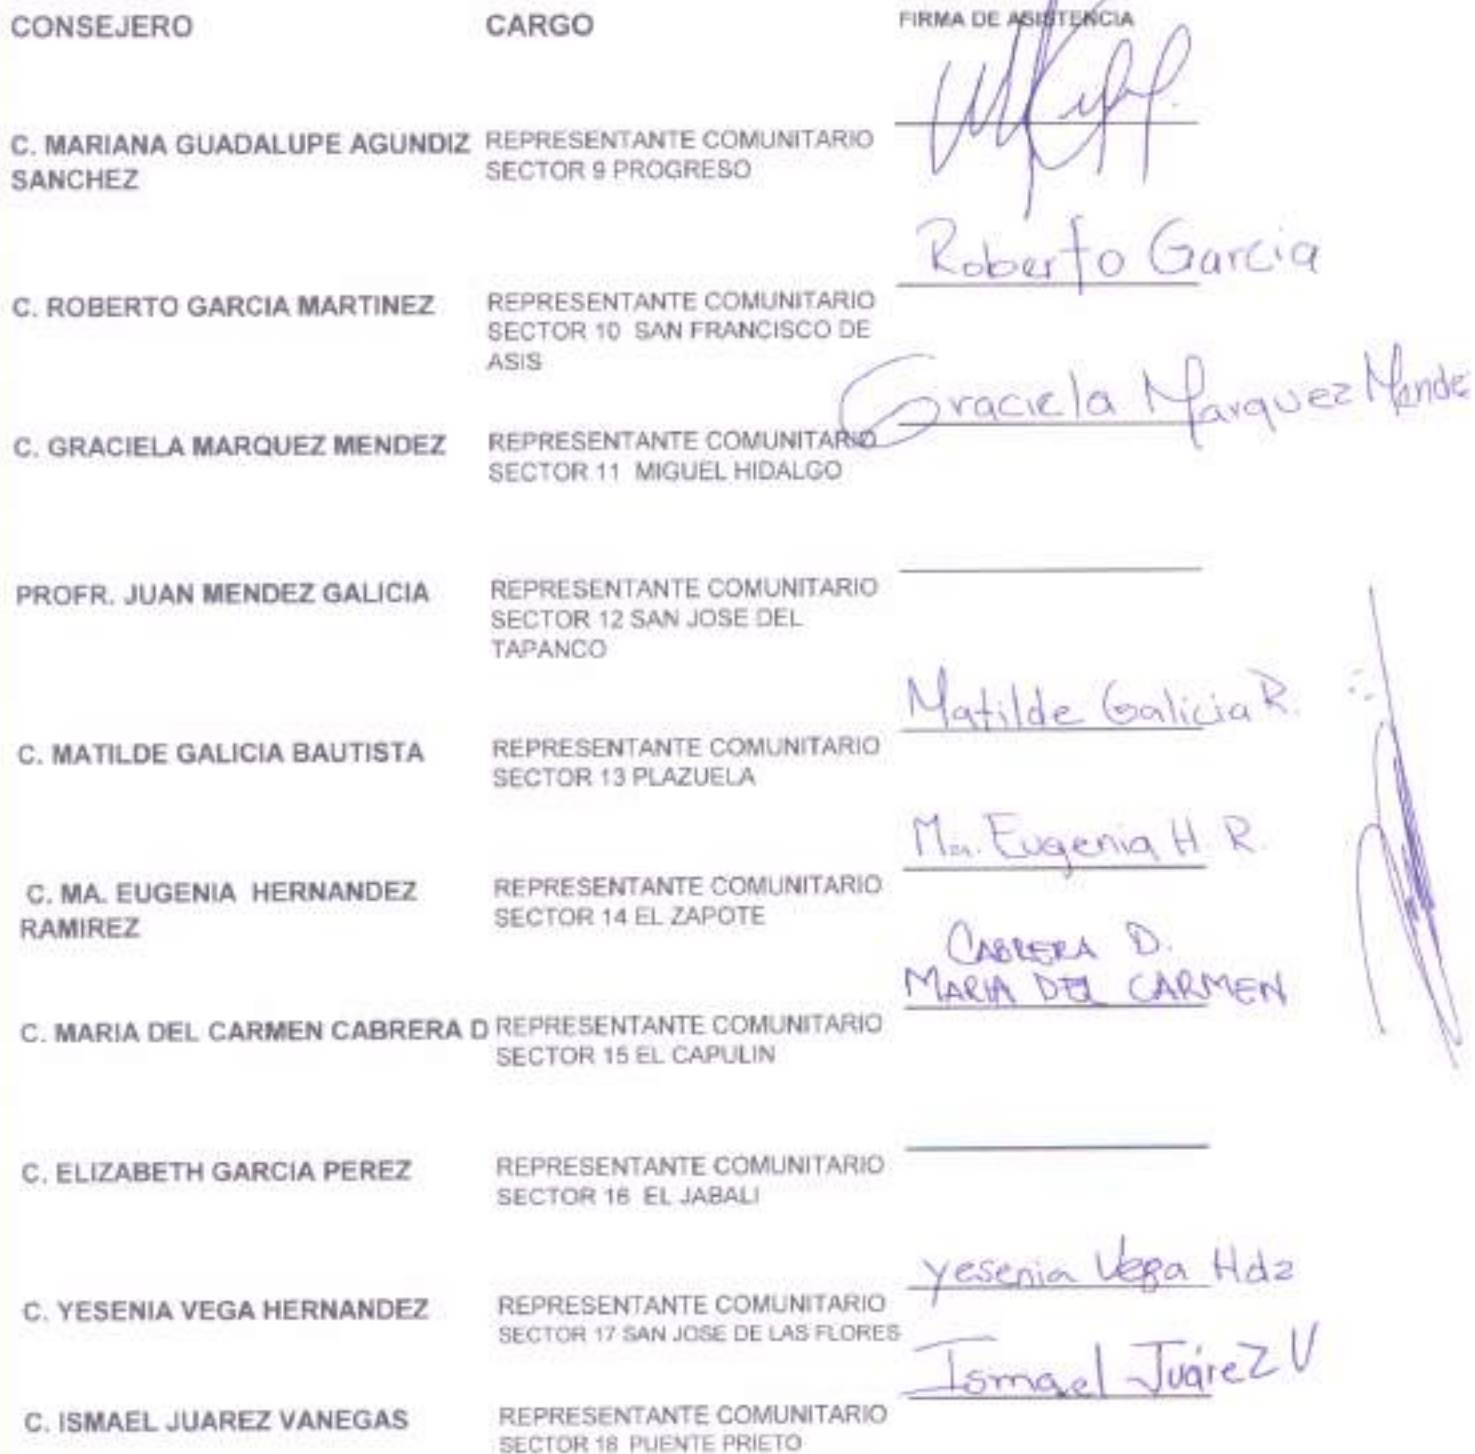 CONSEJERO CARGO FIRMA DE ASISTENCIA
C. MARIANA GUADALUPE AGUNDIZ SANCHEZ
REPRESENTANTE COMUNITARIO
SECTOR 9 PROGRESO
Roberto Garcia
C. ROBERTO GARCIA MARTINEZ
REPRESENTANTE COMUNITARIO
SECTOR 10 SAN FRANCISCO DE
ASIS
Graciela Marquez Mende
C. GRACIELA MARQUEZ MENDEZ
REPRESENTANTE COMUNITARIO
SECTOR 11 MIGUEL HIDALGO
PROFR. JUAN MENDEZ GALICIA
REPRESENTANTE COMUNITARIO
SECTOR 12 SAN JOSE DEL
TAPANCO
Matilde Galicia
C. MATILDE GALICIA BAUTISTA
REPRESENTANTE COMUNITARIO
SECTOR 13 PLAZUELA
Ma. Eugenia H. R.
C. MA. EUGENIA HERNANDEZ
RAMIREZ
REPRESENTANTE COMUNITARIO
SECTOR 14 EL ZAPOTE
CABRERA D.
MARIA DEL CARMEN
C. MARIA DEL CARMEN CABRERA D
REPRESENTANTE COMUNITARIO
SECTOR 15 EL CAPULIN
C. ELIZABETH GARCIA PEREZ
REPRESENTANTE COMUNITARIO
SECTOR 16 EL JABALI
Yesenia Vega Hdz
C. YESENIA VEGA HERNANDEZ
REPRESENTANTE COMUNITARIO
SECTOR 17 SAN JOSE DE LAS FLORES
Ismael Juárez V
C. ISMAEL JUAREZ VANEGAS
REPRESENTANTE COMUNITARIO
SECTOR 18 PUENTE PRIETO